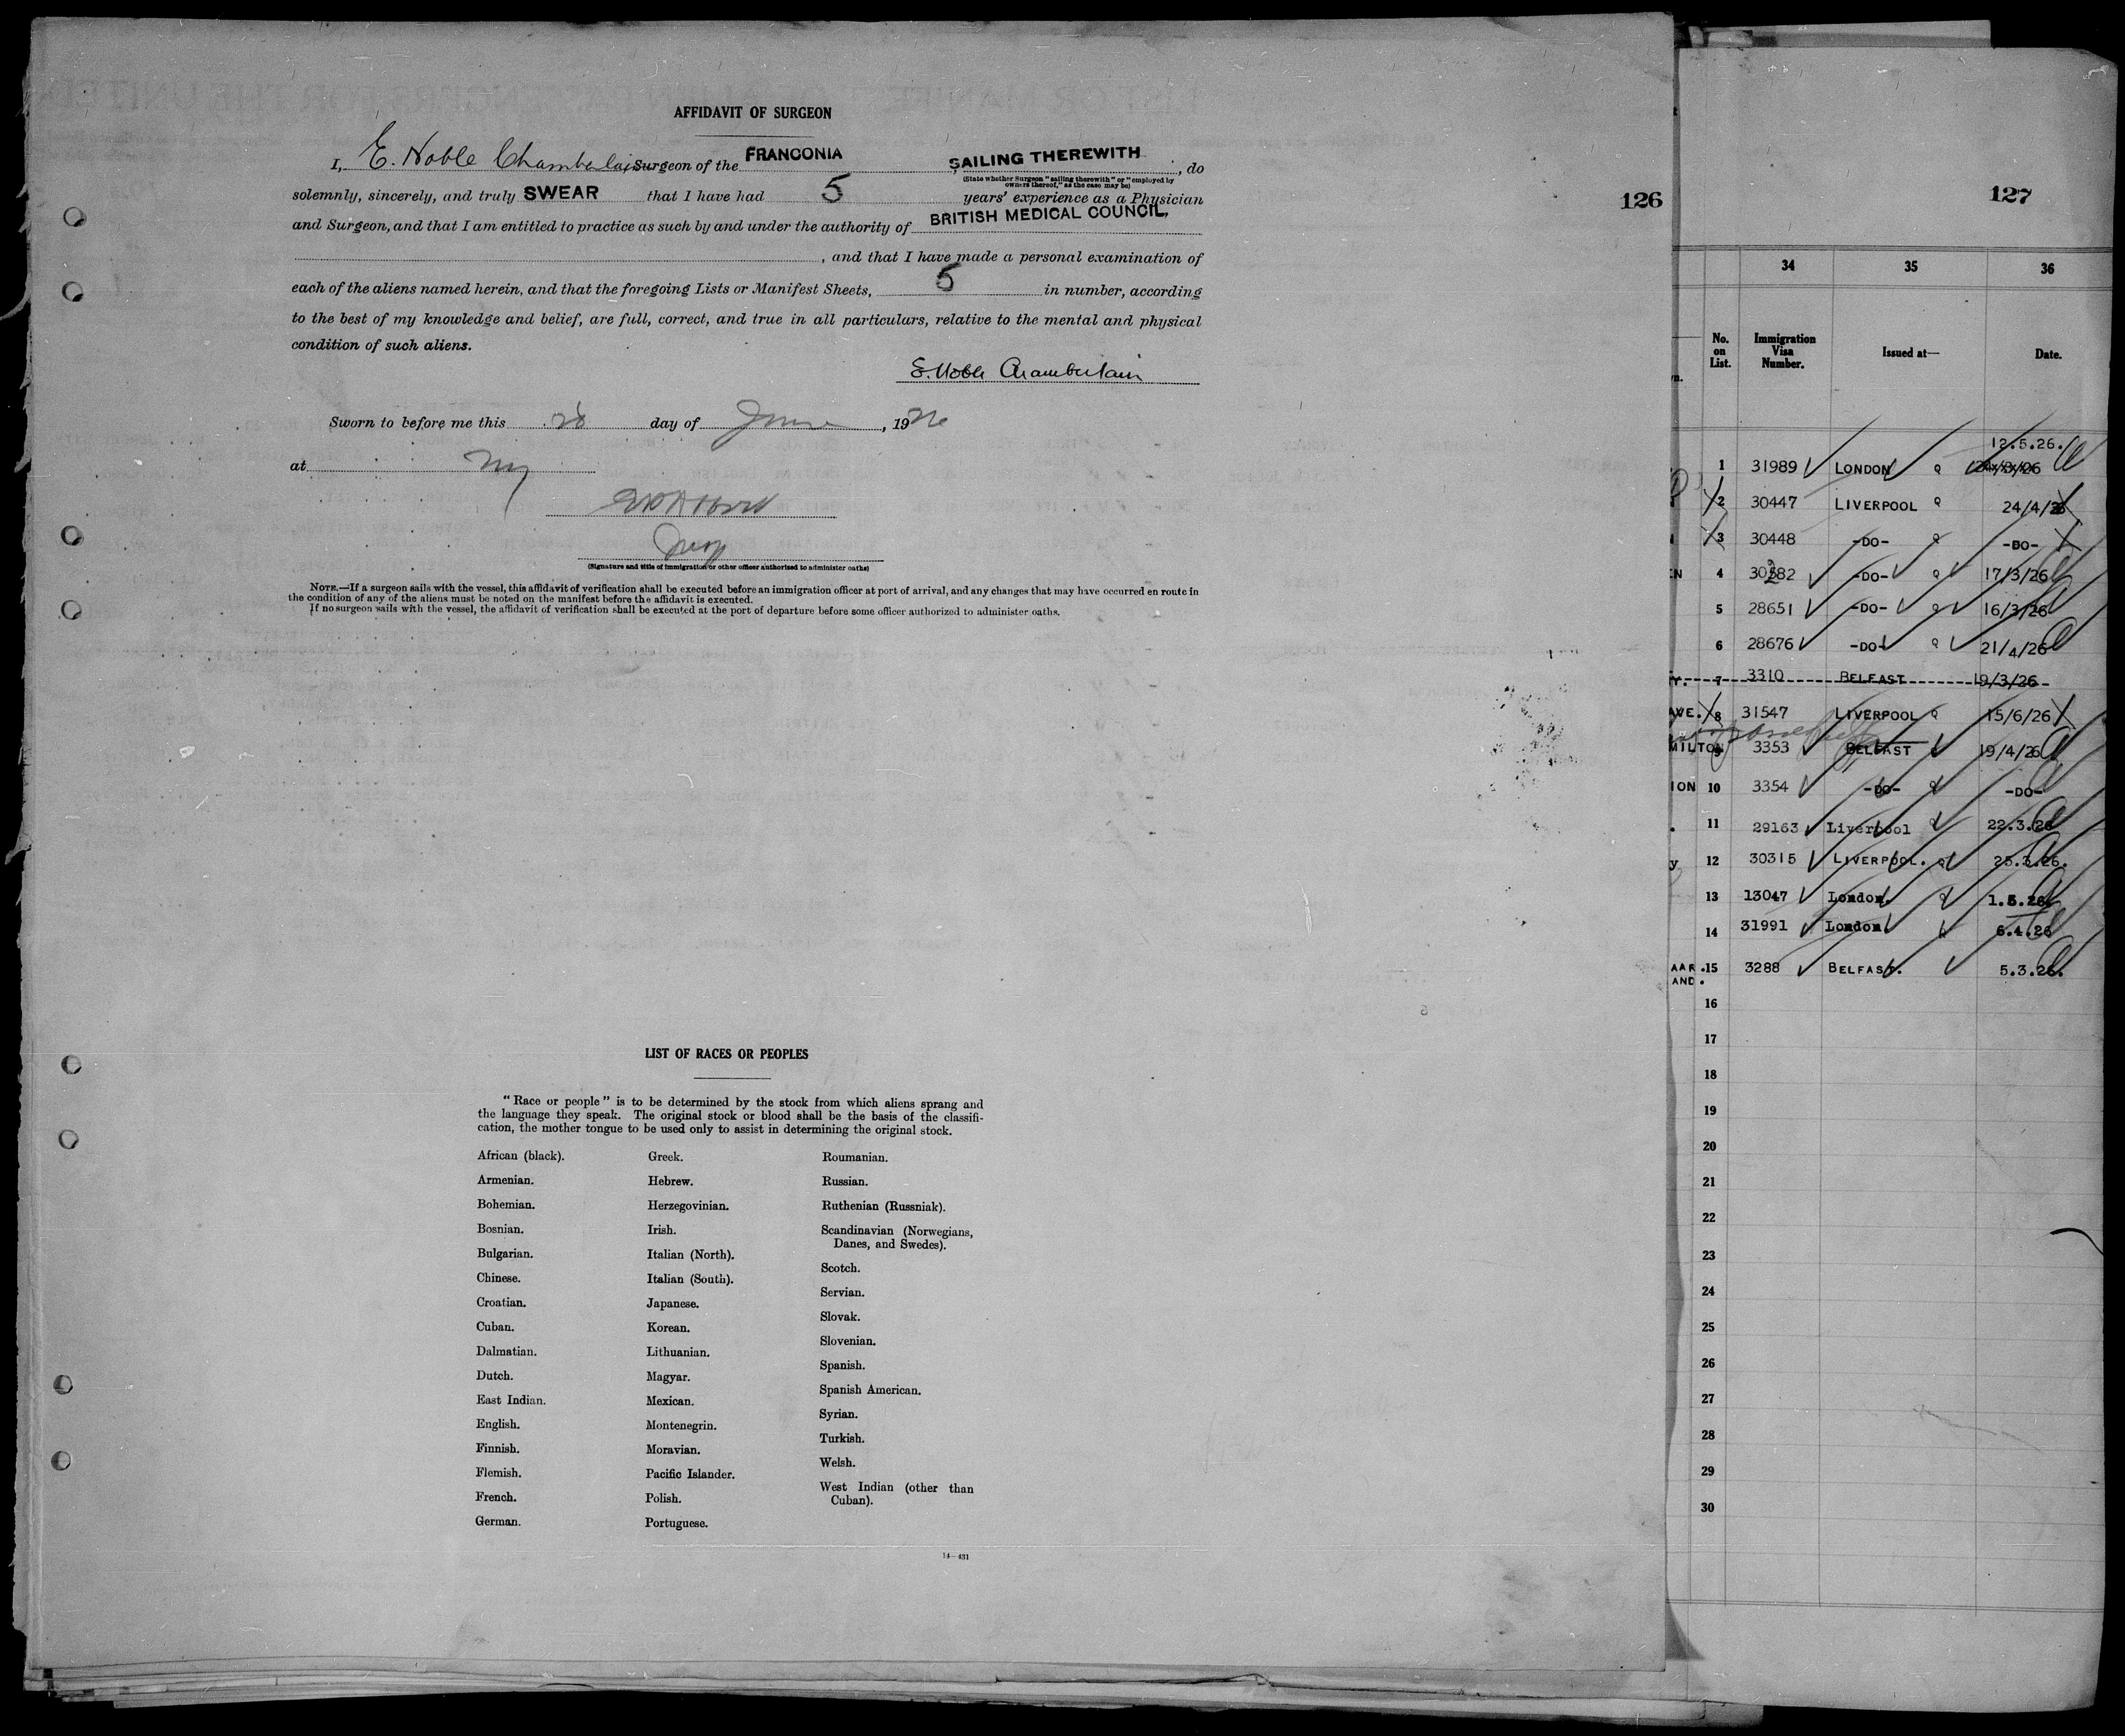 AFFIDAVIT OF SURGEON
I, E. Noble Chamberlain Surgeon of the FRANCONIA SAILING THEREWITH, do
(State whether Surgeon "sailing therewith" or "employed by
owners thereof," as the case may be)
solemnly, sincerely, and truly SWEAR that I have had 5 years' experience as a Physician
and Surgeon, and that I am entitled to practice as such by and under the authority of BRITISH MEDICAL COUNCIL,
, and that I have made a personal examination of
each of the aliens named herein, and that the foregoing Lists or Manifest Sheets, 5 in number, according
to the best of my knowledge and belief, are full, correct, and true in all particulars, relative to the mental and physical
condition of such aliens.
E. Noble Chamberlain
Sworn to before me this 28 day of June, 1926
at NY
Insp
(Signature and title of immigration or other officer authorized to administer oaths)
NOTE.—If a surgeon sails with the vessel, this affidavit of verification shall be executed before an immigration officer at port of arrival, and any changes that may have occurred en route in
the condition of any of the aliens must be noted on the manifest before the affidavit is executed.
If no surgeon sails with the vessel, the affidavit of verification shall be executed at the port of departure before some officer authorized to administer oaths.
126
LIST OF RACES OR PEOPLES
"Race or people" is to be determined by the stock from which aliens sprang and
the language they speak. The original stock or blood shall be the basis of the classifi-
cation, the mother tongue to be used only to assist in determining the original stock.
African (black).
Armenian.
Bohemian.
Bosnian.
Bulgarian.
Chinese.
Croatian.
Cuban.
Dalmatian.
Dutch.
East Indian.
English.
Finnish.
Flemish.
French.
German.
Greek.
Hebrew.
Herzegovinian.
Irish.
Italian (North).
Italian (South).
Japanese.
Korean.
Lithuanian.
Magyar.
Mexican.
Montenegrin.
Moravian.
Pacific Islander.
Polish.
Portuguese.
Roumanian.
Russian.
Ruthenian (Russniak).
Scandinavian (Norwegians,
Danes, and Swedes).
Scotch.
Servian.
Slovak.
Slovenian.
Spanish.
Spanish American.
Syrian.
Turkish.
Welsh.
West Indian (other than
Cuban).
14—431
127
34 35 36
No. on List. Immigration Visa Number. Issued at— Date.
12.5.26.
1 31989 LONDON
2 30447 LIVERPOOL 24/4/26
3 30448 -DO- -DO-
EN 4 30282 -DO- 17/3/26
5 28651 -DO- 16/3/26
6 28676 -DO- 21/4/26
Y. 7 3310 BELFAST 19/3/26
AVE. 8 31547 LIVERPOOL 15/6/26
MILTON 9 3353 BELFAST 19/4/26
ION 10 3354 -DO- -DO-
11 29163 Liverpool 22.3.26
y 12 30315 LIVERPOOL. 25.3.26.
13 13047 London. 1.5.26.
14 31991 London 6.4.26
AAR. 15 3288 BELFAST. 5.3.26.
AND.
16
17
18
19
20
21
22
23
24
25
26
27
28
29
30